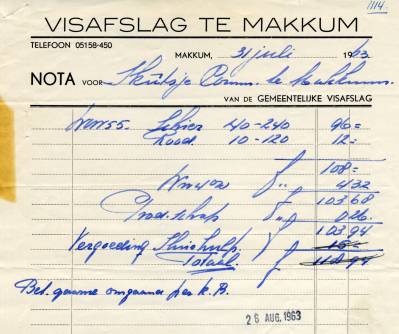 1114.
VISAFSLAG TE MAKKUM
TELEFOON 05158-450
MAKKUM, 31 juli 1963
NOTA VOOR Skûtsje Comm. te Makkum.
VAN DE GEMEENTELIJKE VISAFSLAG
Schier 40-240 96=
Rood. 10-120 12=
ƒ 108=
ƒ 4.32
ƒ 103.68
ƒ 0.26
103.94
Vergoeding Sluishulp ƒ 15=
Totaal ƒ 118.94
Bet. gaarne omgaand per k.B.
26 AUG. 1963